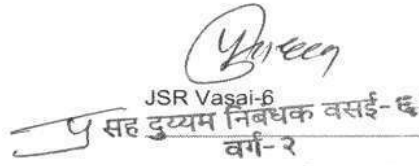 JSR Vasai-6
सह दुय्यम निबंधक वसई-६
वर्ग-२